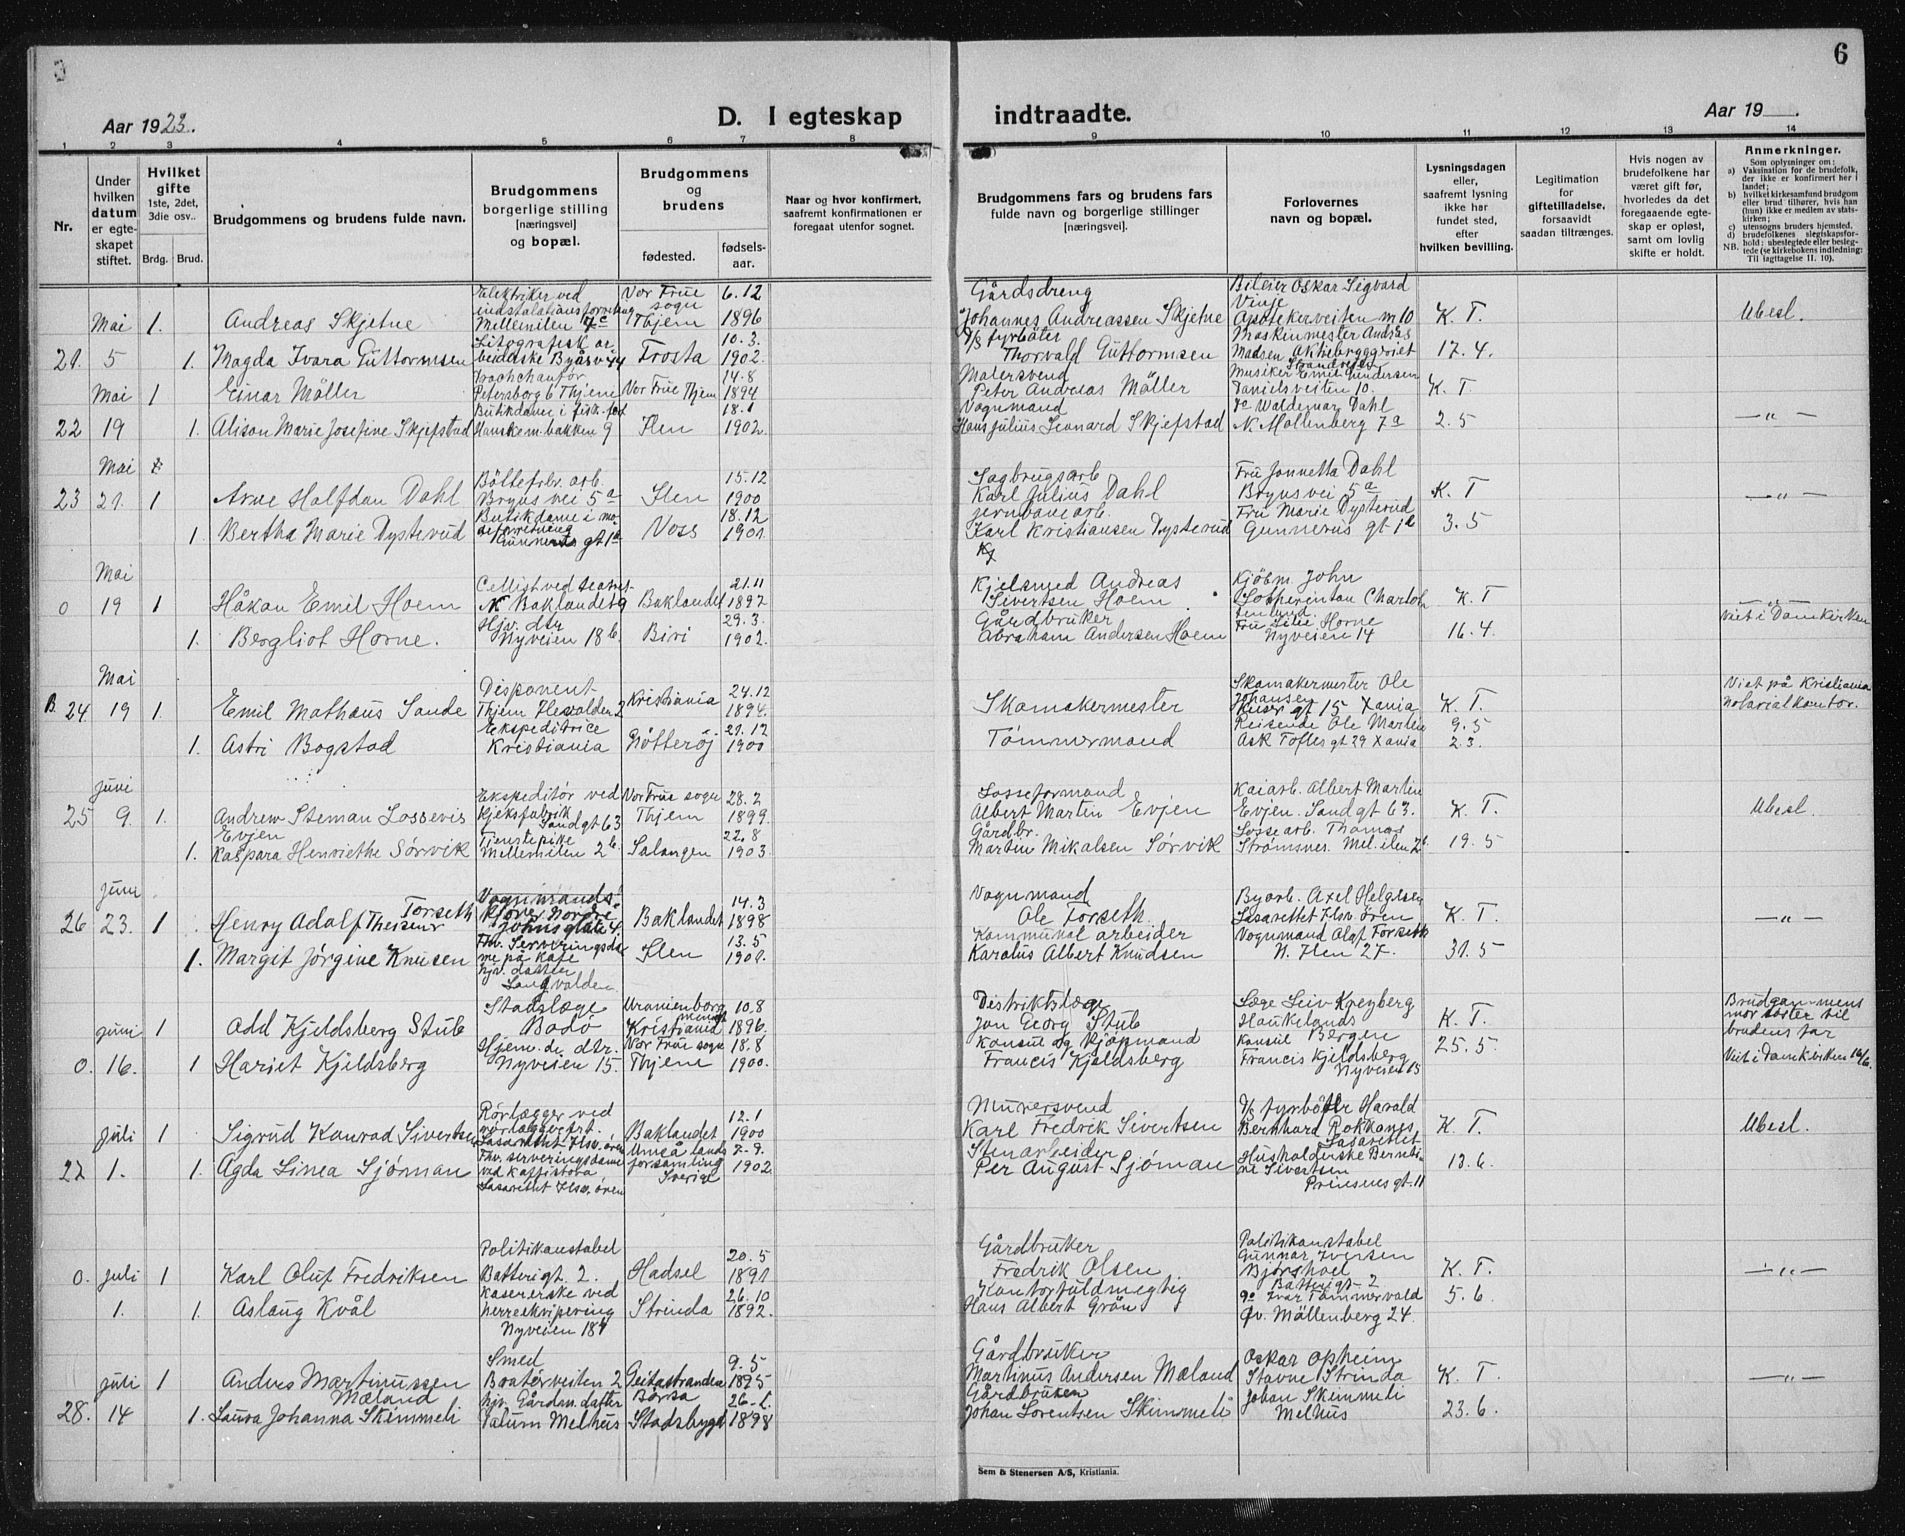 6
Aar 1923.
D. I egteskap
indtraadte.
Aar 19 .
1 2 3 4 5 6 7 8 9 10 11 12 13 14
Nr.
Under hvilken datum er egteskapet stiftet.
Hvilket gifte
1ste, 2det, 3die osv..
Brdg. Brud.
Brudgommens og brudens fulde navn.
Brudgommens og brudens borgerlige stilling
[næringsvei]
og bopæl.
Brudgommens
og
brudens
fødested.
fødsels-
aar.
Naar og hvor konfirmert,
saafremt konfirmationen er
foregaat utenfor sognet.
Brudgommens fars og brudens fars
fulde navn og borgerlige stillinger
[næringsvei].
Forlovernes
navn og bopæl.
Lysningsdagen
eller,
saafremt lysning
ikke har
fundet sted,
efter
hvilken bevilling.
Legitimation
for
giftetilladelse,
forsaavidt
saadan tiltrænges.
Hvis nogen av
brudefolkene har
været gift før,
hvorledes da det
foregaaende egte-
skap er opløst,
samt om lovlig
skifte er holdt.
Anmerkninger.
Som oplysninger om:
a) Vaksination for de brudefolk,
der ikke er konfirmert her i
landet;
b) hvilket kirkesamfund brudgom
eller brud tilhører, hvis han
(hun) ikke er medlem av stats-
kirken;
c) utensogns bruders hjemsted.
d) brudefolkenes slegtskapsfor-
hold: ubeslegtede eller besleg-
tede (se kirkebokens indledning:
NB. Til iagttagelse II. 10).
21. Mai 5
1. Andreas Skjetne
Elektriker ved
Mellemilen 7c
Vor Frue
sogn
Thjem
6.12
1896
Gårdsdreng
Johannes Andreassen Skjetne
Bileier Oskar Sigvard
Vinje
Apotekerveiten m 10
K. T.
Ubesl.
1. Magda Ivara Guttormsen
Litografisk ar-
Frosta
10.3.
1902.
fyrbøter
Thorvald Guttormsen
Maskinmester Andreas
Madsen Aktiebryggeriet
17.4.
22 Mai 19
1 Einar Möller
Petersborg 6 Thjem
Vor Frue Thjem
14.8
1894
Malersvend
Peter Andreas Möller
Musiker Emil Gundersen
Danielsveiten 10
K. T.
— " —
1. Alison Marie Josefine Skjefstad
Hanskem.bakken 9
Ilen
18.1
1902.
Vognmand
Hans Julius Leonard Skjefstad
Waldemar Dahl
N. Mollenberg 7a
2.5
23 Mai 21.
1 Arne Halfdan Dahl
Böttefabr. arb.
Brynsvei 5a
Ilen
15.12
1900
Sagbrugsarb
Karl Julius Dahl
Fru Jannetta Dahl
Brynsvei 5a
K. T
— " —
1. Bertha Marie Dysterud
Butikdame i mo-
deforretning
Gunnerus gt 1
Voss
18.12
1901
jernbanearb.
Karl Kristiansen Dysterud
Fru Marie Dysterud
Gunnerus gt 1
3.5
0 Mai 19
1 Håkon Emil Hoem
Cellist ved teatret
N. Baklandet 9
Baklandet
21.11
1897
Kjelsmed Andreas
Sivertsen Hoem
Kjöbm. John
K. T
— " —
Viet i Domkirken
1. Bergliot Horne.
Hjv. dtr
Nyveien 18b.
Biri
29.3.
1902.
Gårdbruker
Abraham Andersen Hoem
Horne
Nyveien 14
16.4.
B. 24 Mai 19
1. Emil Mathæus Sande
Disponent
Kristiania
24.12
1894.
Skomakermester
Skomakermester Ole
Johansen
Keiser gt 15 Xania
K. T.
9.5
Viet på Kristiania
Notarialkontor.
1. Astri Bogstad
Ekspeditrice
Kristiania
Nötteröj
21.12
1900
Tömmermand
Reisende Ole Martin
Ask Toftes gt 29 Xania
2.3.
25 Juni 9.
1. Andrew Steman Lossevis
Evjen
Ekspeditör ved
Kjeksfabrik
Sandgt 63
Vor Frue sogn
Thjem
28.2
1899.
Losseformand
Albert Martin Evjen
Kaiarb. Albert Martin
Evjen. Sandgt 63.
K. T.
Ubesl.
1. Kaspara Henriethe Sørvik
Tjenestepike
Mellemilen 2b.
Salangen
22.8
1903.
Gårdbr.
Martin Mikalsen Sörvik
Lossearb. Thomas
Strømsnes. Mel. ilen 2b
19.5
26 Juni 23.
1 Henry Adolf Theisen
Torseth
Vognmands-
kjörer Nordre
Baklandet
14.3
1898
Vognmand
Ole Forseth.
Byarb. Axel Helgesen
Lasarettet Ilsv. ören
K. T.
— " —
1. Margit Jørgine Knusen
Fhv. Serveringsda-
me på kafe
hjv. datter
Ilen
13.5
1901.
Kommunal arbeider
Karolus Albert Knudsen
Vognmand Olaf Forseth
N. Ilen 27.
31.5
0. Juni 16.
1 Odd Kjeldsberg Stub
Stadslæge
Bodö
Uranienborg
menigh
Kristiania
10.8
1896.
Distriktslæge
Jon Georg Stub
Læge Leiv Kreyberg
Haukelands
Bergen
K. T.
25.5.
Brudgommens
mor söster til
brudens far
1 Hariet Kjeldsberg
Hjem. dv. dtr.
Nyveien 15.
Vor Frue sogn
Thjem
18.8
1900.
Konsul og kjöpmand
Francis Kjeldsberg
Konsul
Francis Kjeldsberg
Nyveien 15
Viet i Domkirken 16/6.
27 Juli 1.
1 Sigrud Konrad Sivertsen
Rörlægger ved
Lasarettet Ilsv. ören
Baklandet
12.1
1900
Murersvend
Karl Fredrik Sivertsen
fyrböter Harald
Bernhard Rokkones
Lasarettet
K. T.
Ubesl.
1. Agda Linea Sjörman
Fhv. serveringsdame
ved kaffistova
Lasarettet Ilsv. ören
Umeå lands
forsamling
Sverige
7.9.
1902.
Stenarbeider
Per August Sjöman
Husholderske Bernti-
ne Sivertsen
Prinsensgt. 11
13.6.
0. Juli 1.
1 Karl Oluf Fredriksen
Politikonstabel
Batterigt. 2.
Hadsel
20.5
1891
Gårdbruker
Fredrik Olsen
Politikonstabel
Gunnar Iversen
Batterigt 2
K. T.
— " —
1. Aslaug Kvål
Kasererske ved
herreekvipering
Nyveien 18
Strinda
26.10
1892.
Kontorfuldmegtig
Hans Albert Grön
Ivar Tömmervold
Øv. Möllenberg 24.
5.6.
28. Juli 14
1 Anders Martinussen
Mæland
Smed
Geitastranden
Börsa
9.5
1895
Gårdbruker
Martinus Andersen Mæland
Oskar Opheim
Stavne Strinda
K. T.
— " —
1. Laura Johanna Skimmeli
hjv. Gårdm. datter
Melhus
Stadsbygd
1898
Gårdbruker
Johan Lorentsen Skimmeli
Johan Skimmeli
Melhus
23.6.
Sem & Stenersen A/S, Kristiania.